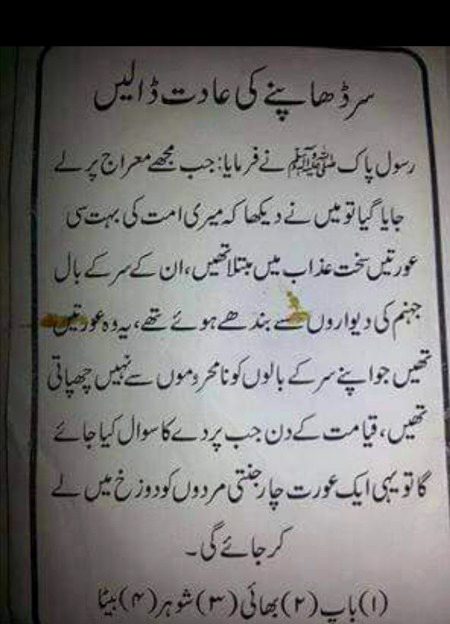 سر ڈھاپنے کی عادت ڈالیں
رسول پاک ﷺ نے فرمایا: جب مجھے معراج پر لے
جایا گیا تو میں نے دیکھا کہ میری امت کی بہت سی
عورتیں سخت عذاب میں مبتلا تھیں، ان کے سر کے بال
جہنم کی دیواروں سے بندھے ہوئے تھے، یہ وہ عورتیں
تھیں جو اپنے سر کے بالوں کو نامحروموں سے نہیں چھپاتی
تھیں، قیامت کے دن جب پردے کا سوال کیا جائے
گا تو یہی ایک عورت چار جنتی مردوں کو دوزخ میں لے
کر جائے گی۔
(۱) باپ (۲) بھائی (۳) شوہر (۴) بیٹا